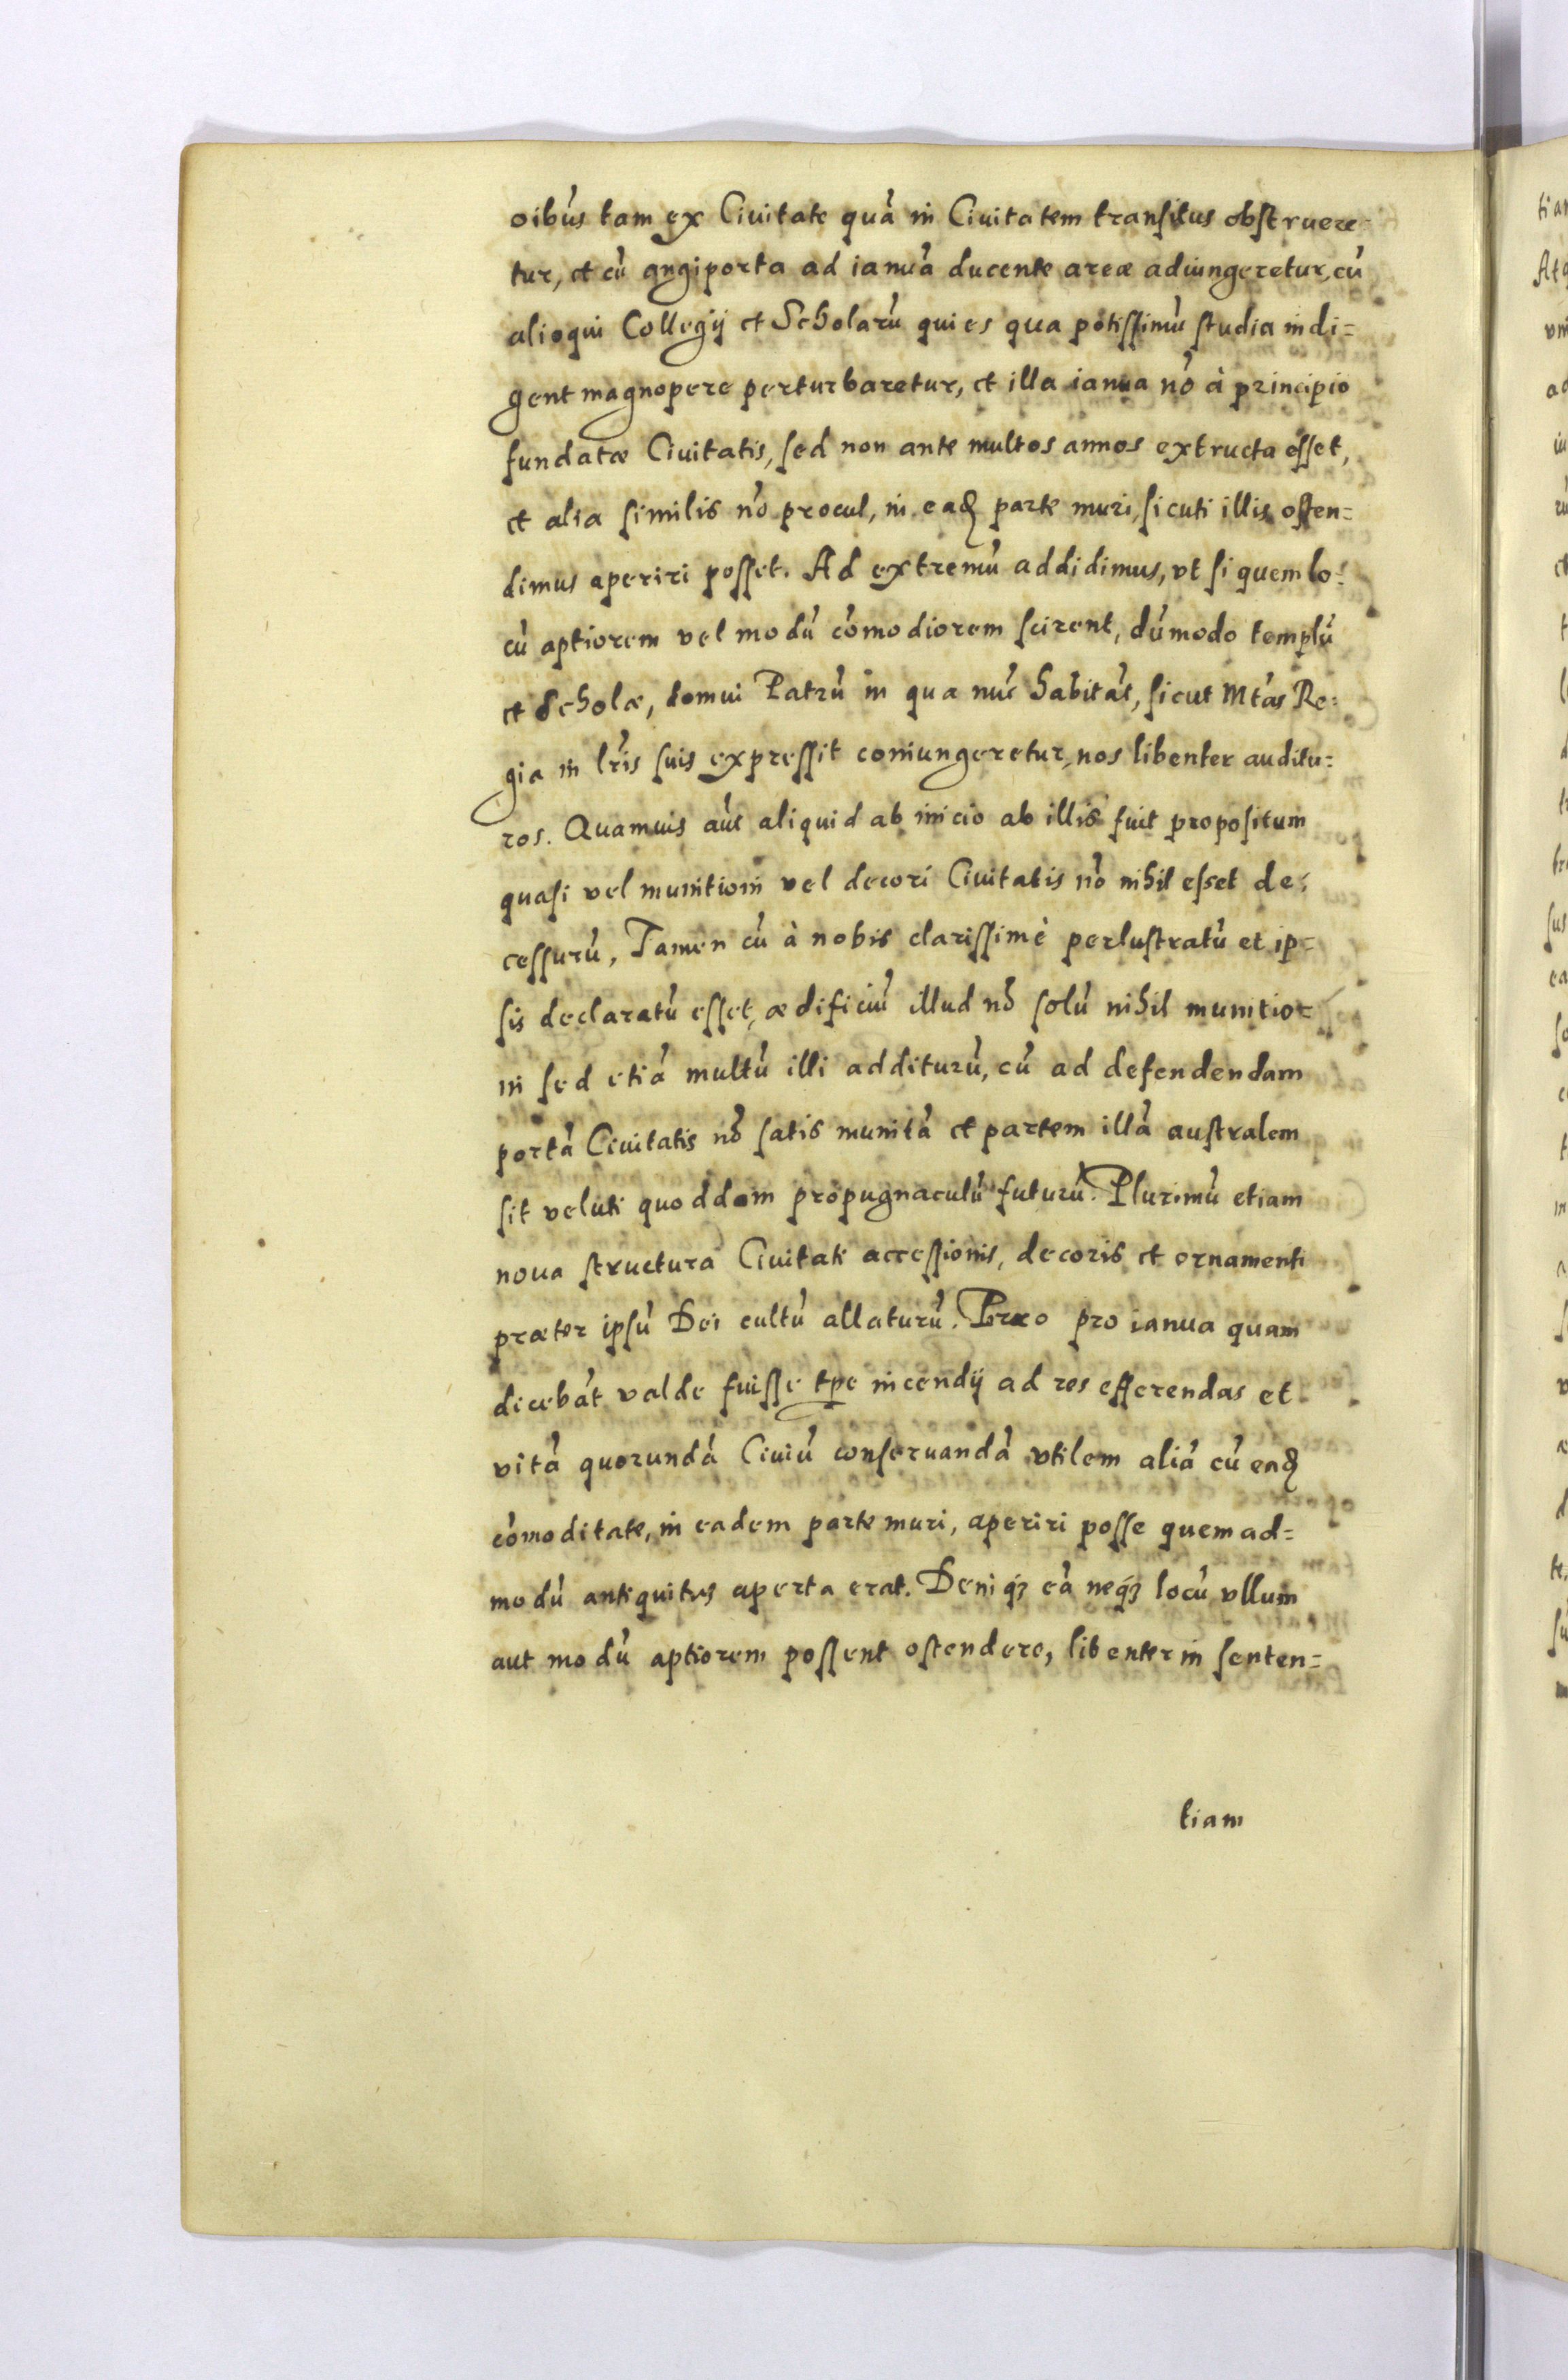 oibus tam ex Ciuitate quā in Ciuitatem transitus obstruere
tur, et cū angiporta ad ianuā ducente areæ adiungeretur, cū
alioqui Collegij et Scholarū quies qua potissimū studia indi=
gent magnopere perturbaretur, et illa ianua nō à principio
fundatæ Ciuitatis, sed non ante multos annos extructa esset,
et alia similis nō procul, in eadē parte muri, sicuti illis osten=
dimus aperiri posset. Ad extremū addidimus, vt si quem lo=
cū aptiorem vel modū cōmodiorem scirent, dūmodo templū
et Scholæ, domui Patrū in qua nūc habitāt, sicut Mtas Re=
gia in lris suis expressit coniungeretur, nos libenter auditu=
ros. Quamuis aut aliquid ab inicio ab illis fuit propositum
quasi vel munitioni vel decori Ciuitatis nō nihil esset de=
cessurū, Tamen cū à nobis clarissimè perlustratū et ip=
sis declaratū esset, ædificiū illud nō solū nihil munitio=
ni sed etiā multū illi additurū, cū ad defendendam
portā Ciuitatis nō satis munitā et partem illā australem
sit veluti quoddam propugnaculū futurū. Plurimū etiam
noua structura Ciuitati accessionis, decoris et ornamenti
præter ipsū Dei cultū allaturū. Porro pro ianua quam
dicebāt valde fuisse tpe incendij ad res efferendas et
vitā quorundā Ciuiū conseruandā vtilem aliā cū eadē
cōmoditate, in eadem parte muri, aperiri posse quemad=
modū antiquitus aperta erat. Deniqȝ cā neqȝ locū vllum
aut modū aptiorem possent ostendere, libenter in senten=
tiam